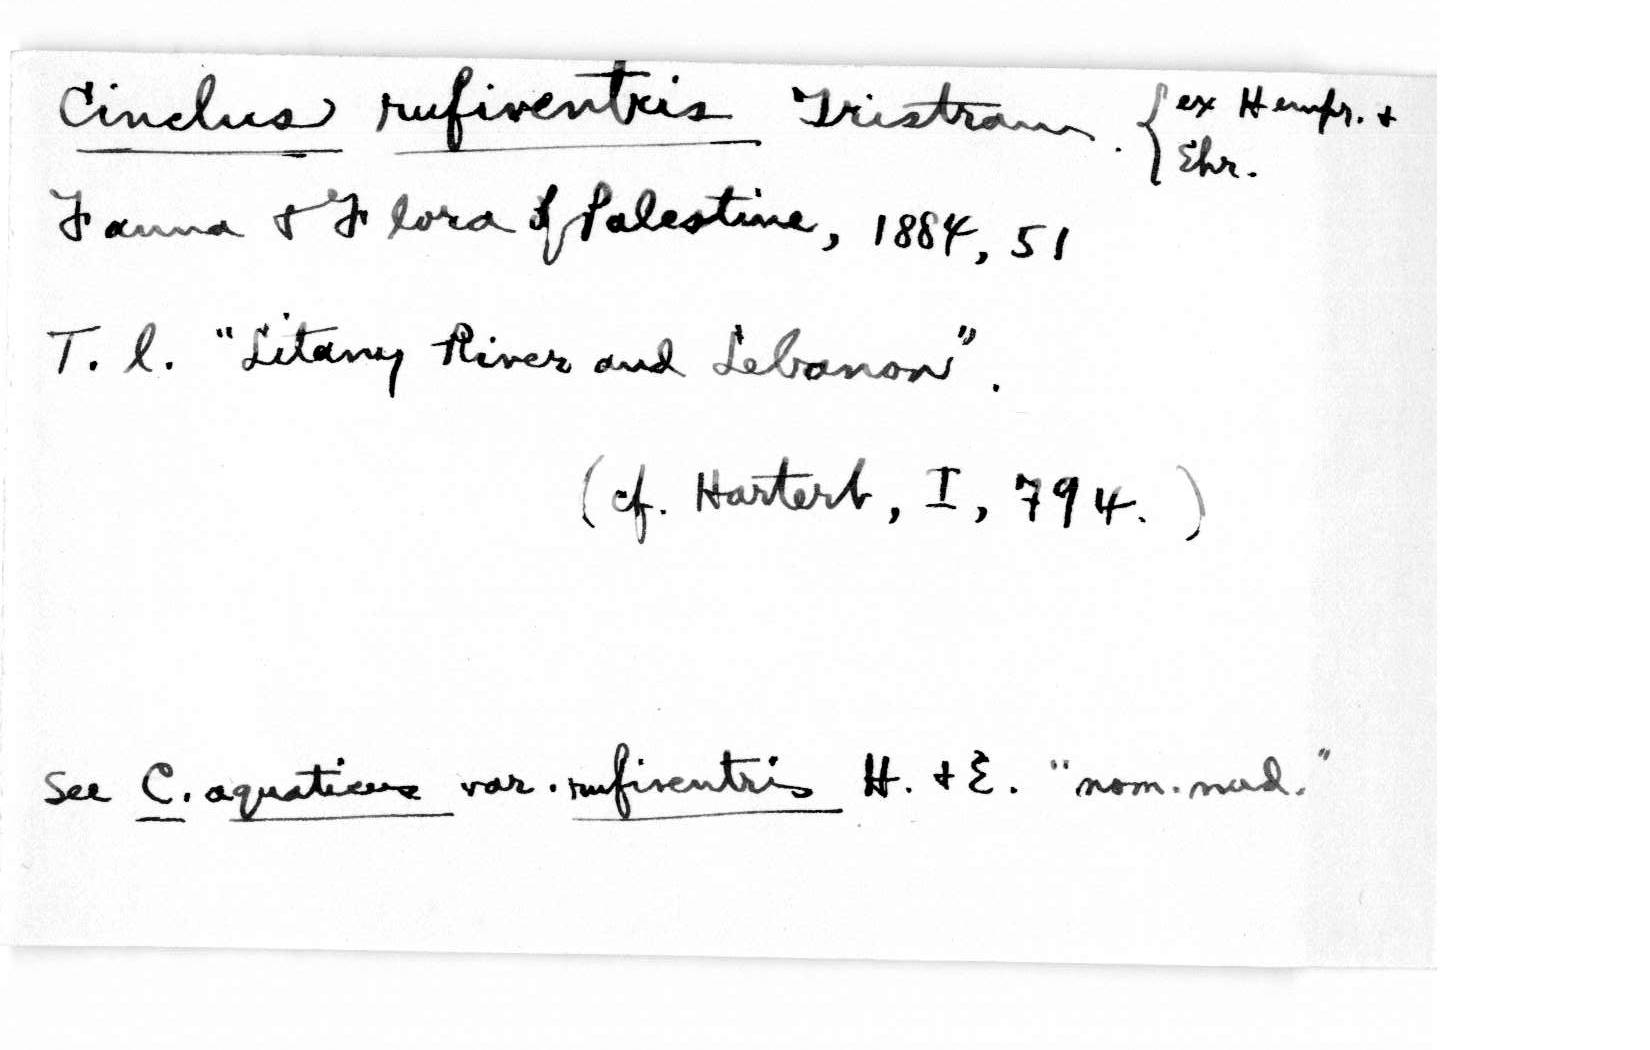 Cinclus rufiventris Tristram. { ex Hempr. &
Ehr.
Fauna & Flora of Palestine, 1884, 51
T. l. "Litany River and Lebanon".
(cf. Hartert, I, 794.)
See C. aquaticus var. rufiventris H. & E. "nom. nud."